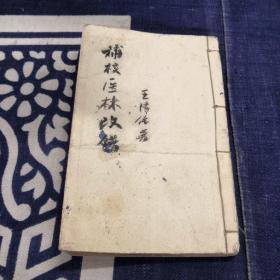 補校医林改錯
王清任著